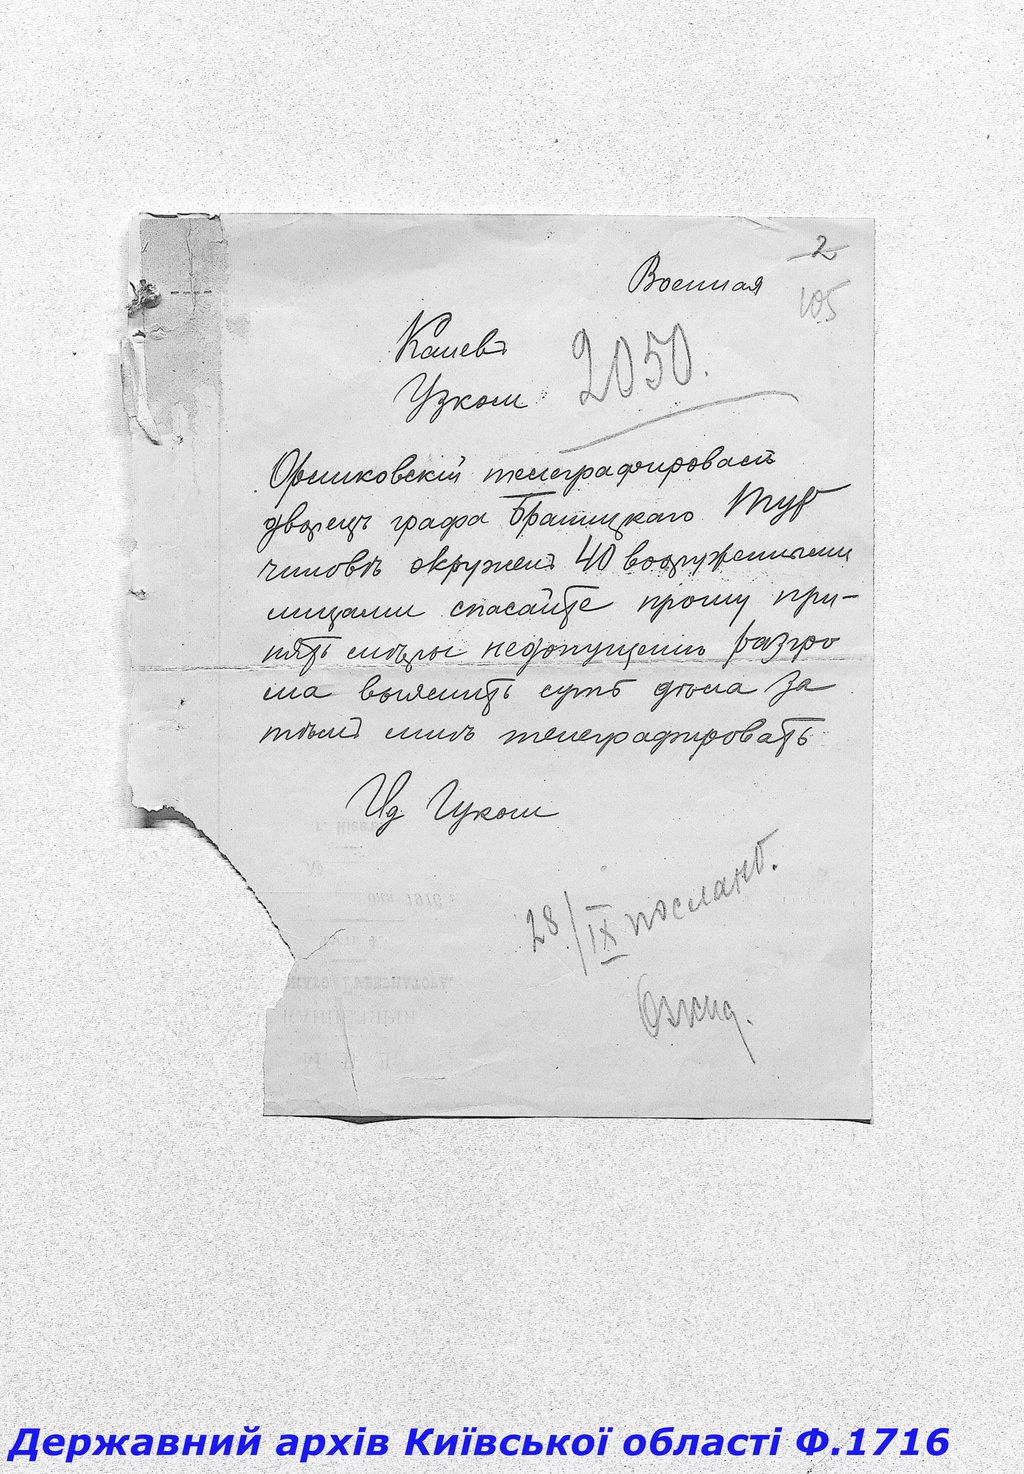 2
Военная
105
Каневъ
Узком 2050.
телеграфировалъ
дворецъ графа Браницкаго
окруженъ 40 вооруженными
лицами спасайте прошу при-
нять мѣры недопущенію разгро
ма выяснить суть дѣла за
тѣмъ мнѣ телеграфировать
Ид Губком
28/IX послано.
Державний архів Київської області Ф.1716